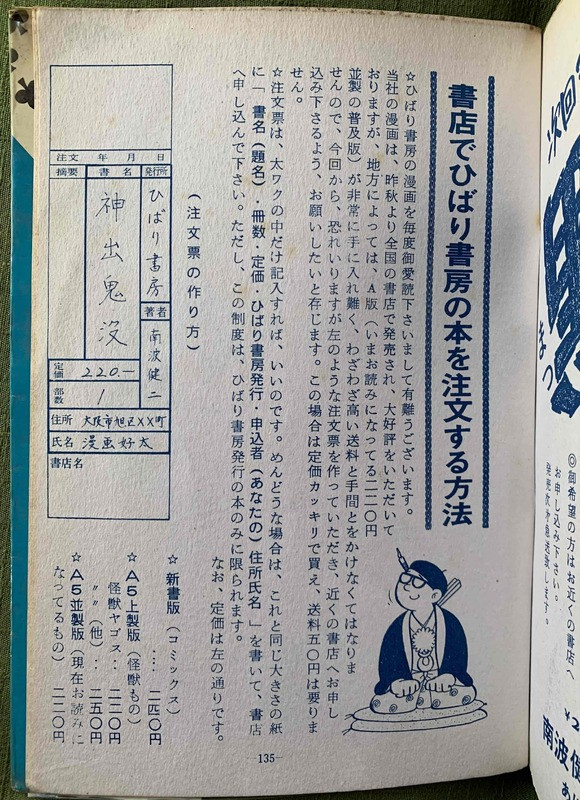 書店でひばり書房の本を注文する方法
☆ひばり書房の漫画を毎度御愛読下さいまして有難うございます。
当社の漫画は、昨秋より全国の書店で発売され、大好評をいただいて
おりますが、地方によっては、A版(いまお読みになってる二二〇円
並製の普及版)が非常に手に入れ難く、わざわざ高い送料と手間とをかけなくてはなりま
せんので、今回から、恐れいりますが左のような注文票を作っていただき、近くの書店へお申し
込み下さるよう、お願いしたいと存じます。この場合は定価カッキリで買え、送料五〇円は要りま
せん。
☆注文票は、太ワクの中だけ記入すれば、いいのです。めんどうな場合は、これと同じ大きさの紙
に「書名(題名)・冊数・定価・ひばり書房発行・申込者(あなたの)住所氏名」を書いて、書店
へ申し込んで下さい。ただし、この制度は、ひばり書房発行の本のみに限られます。
なお、定価は左の通りです。
(注文票の作り方)
注文 年 月 日
摘要
書名
発行所
ひばり書房
神出鬼没
著者
南波健二
定価
220.-
部数
1
住所
大阪市旭区××町
氏名
漫画好太
書店名
☆新書版(コミックス)
‥‥二四〇円
☆A5上製版(怪獣もの)
怪獣ヤゴス‥二二〇円
〃〃(他)‥二五〇円
☆A5並製版(現在お読みに
なってるもの)二二〇円
―135―
次回
まつ
◎御希望の方はお近くの書店へ
お申し込み下さい。
発売次第急送致します。
¥2
南波健